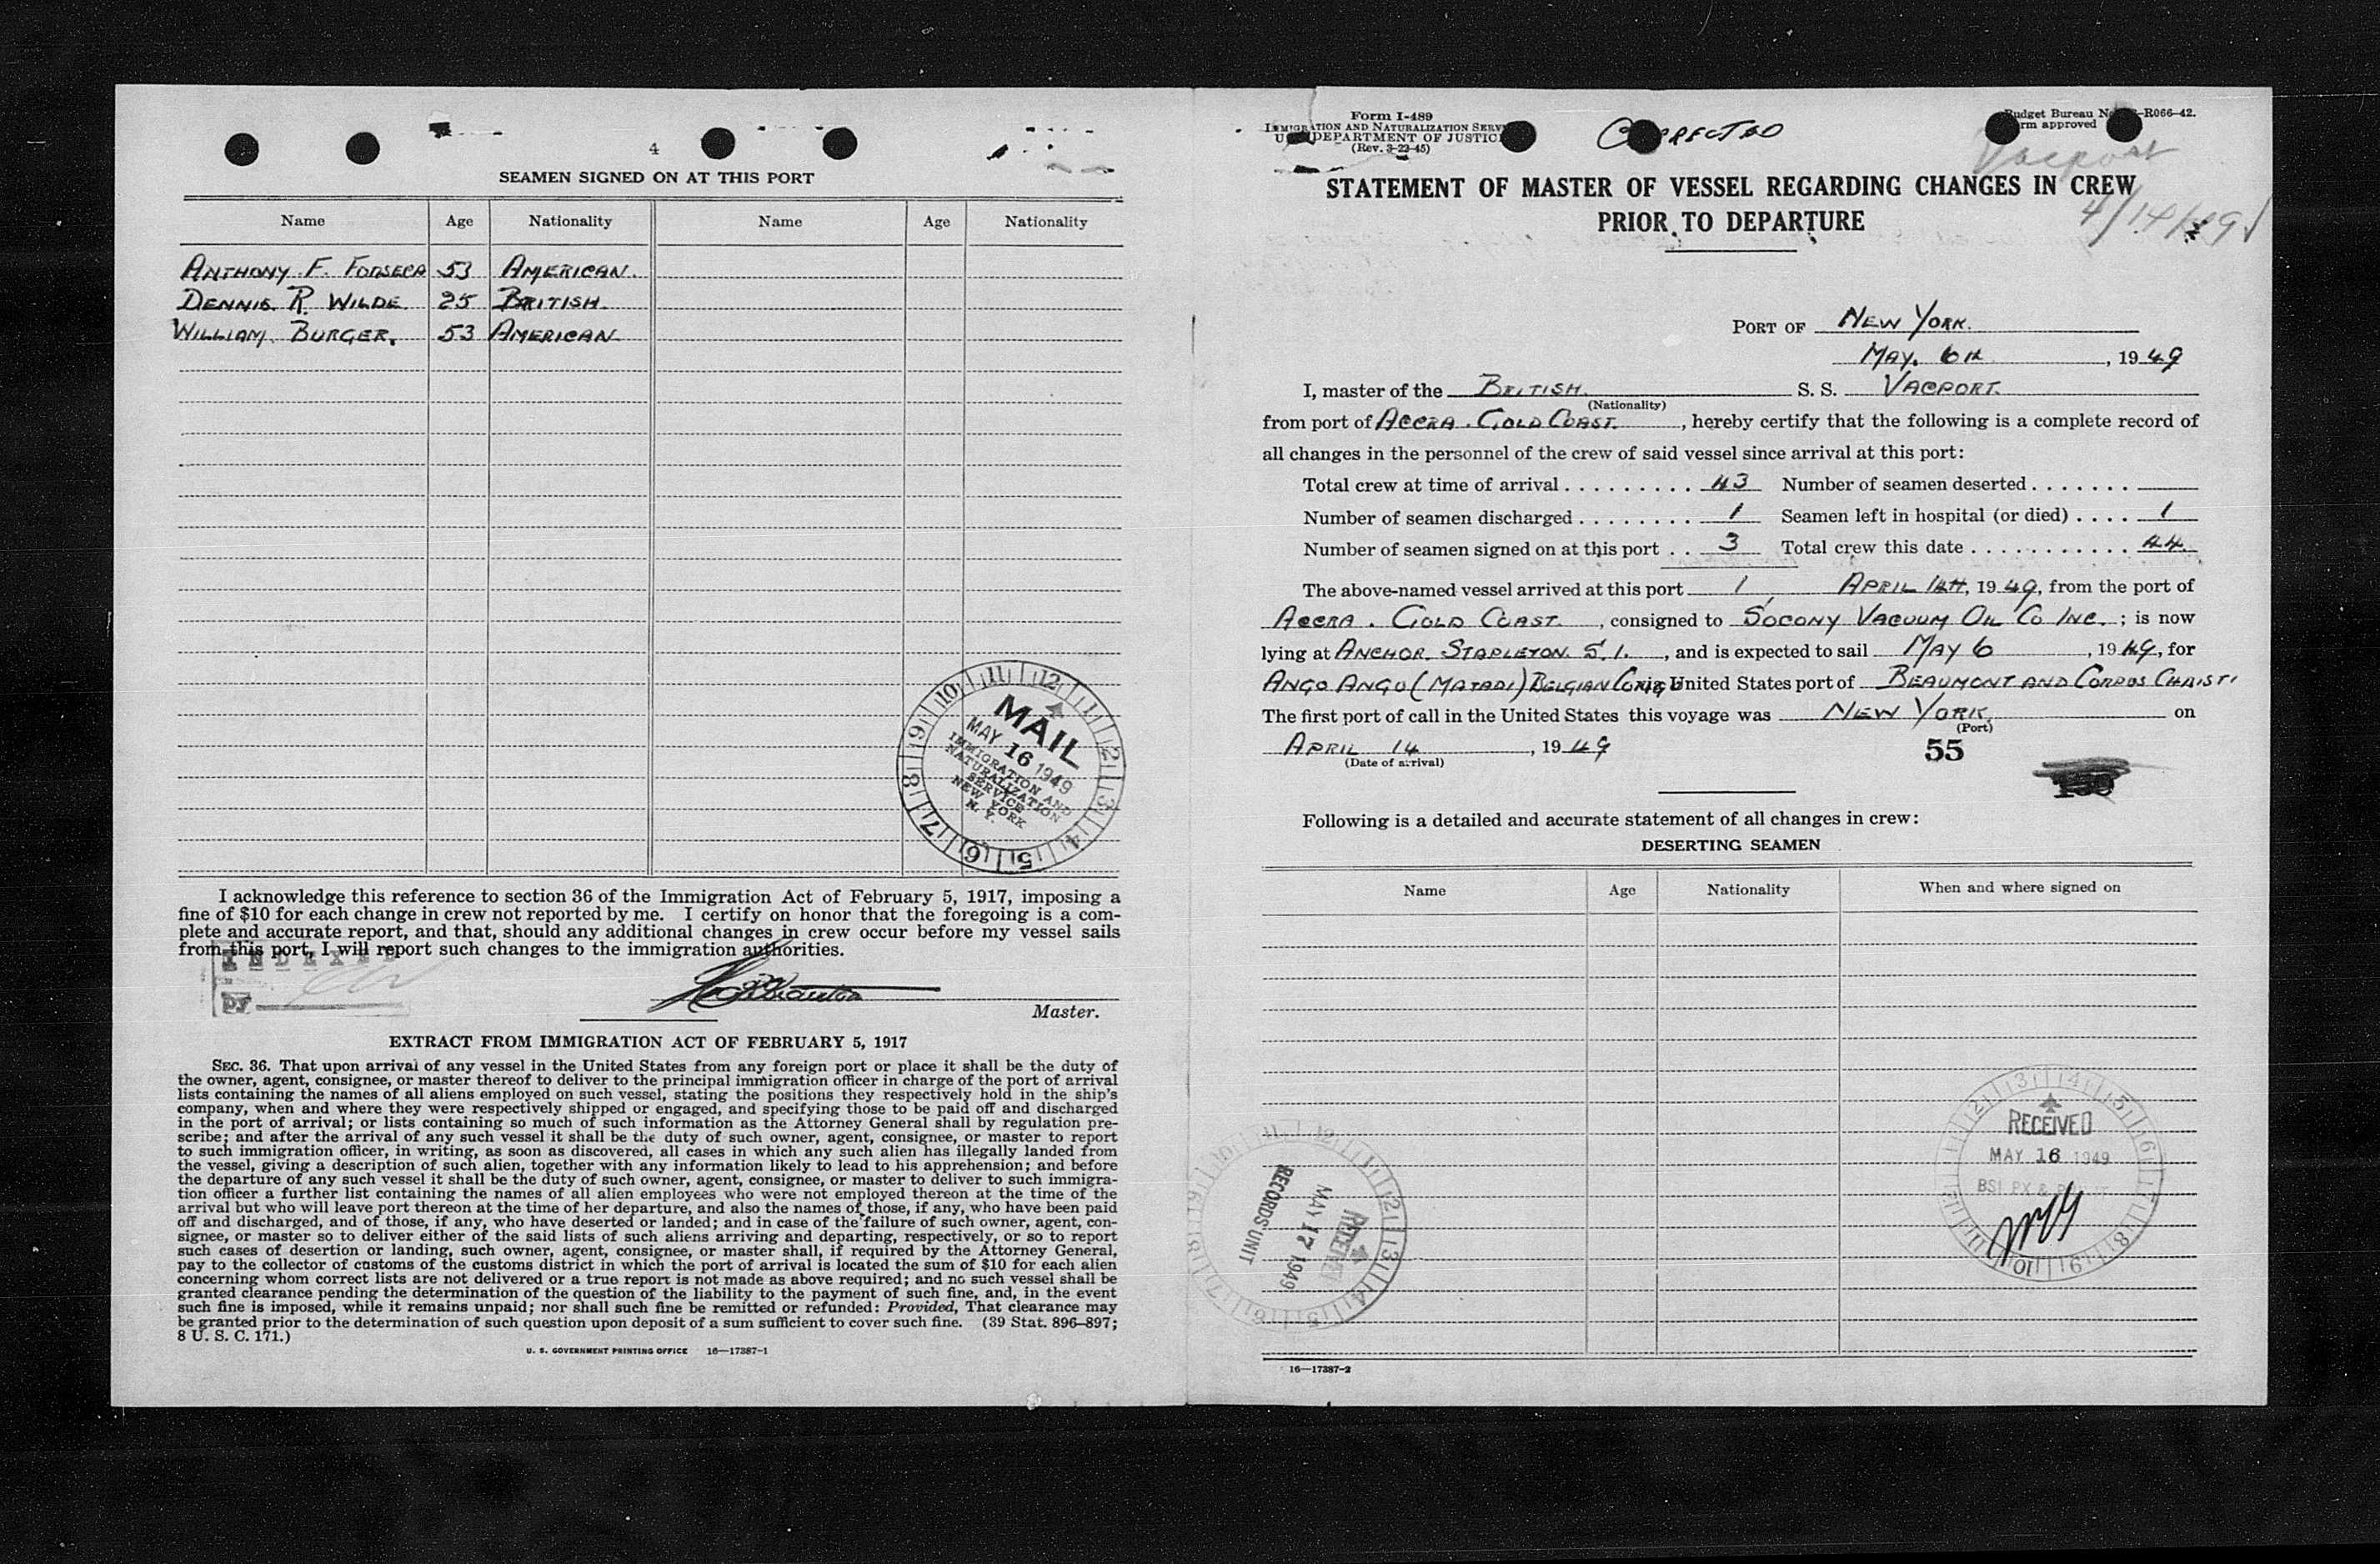 4
SEAMEN SIGNED ON AT THIS PORT
Name Age Nationality Name Age Nationality
ANTHONY F. FONSECA 53 AMERICAN.
DENNIS. R. WILDE 25 BRITISH.
WILLIAM. BURGER. 53 AMERICAN
MAIL
MAY 16 1949
IMMIGRATION AND
NATURALIZATION
SERVICE
NEW YORK
N. Y.
I acknowledge this reference to section 36 of the Immigration Act of February 5, 1917, imposing a
fine of $10 for each change in crew not reported by me. I certify on honor that the foregoing is a com-
plete and accurate report, and that, should any additional changes in crew occur before my vessel sails
from this port, I will report such changes to the immigration authorities.
INDEXED
by
Master.
EXTRACT FROM IMMIGRATION ACT OF FEBRUARY 5, 1917
SEC. 36. That upon arrival of any vessel in the United States from any foreign port or place it shall be the duty of
the owner, agent, consignee, or master thereof to deliver to the principal immigration officer in charge of the port of arrival
lists containing the names of all aliens employed on such vessel, stating the positions they respectively hold in the ship's
company, when and where they were respectively shipped or engaged, and specifying those to be paid off and discharged
in the port of arrival; or lists containing so much of such information as the Attorney General shall by regulation pre-
scribe; and after the arrival of any such vessel it shall be the duty of such owner, agent, consignee, or master to report
to such immigration officer, in writing, as soon as discovered, all cases in which any such alien has illegally landed from
the vessel, giving a description of such alien, together with any information likely to lead to his apprehension; and before
the departure of any such vessel it shall be the duty of such owner, agent, consignee, or master to deliver to such immigra-
tion officer a further list containing the names of all alien employees who were not employed thereon at the time of the
arrival but who will leave port thereon at the time of her departure, and also the names of those, if any, who have been paid
off and discharged, and of those, if any, who have deserted or landed; and in case of the failure of such owner, agent, con-
signee, or master so to deliver either of the said lists of such aliens arriving and departing, respectively, or so to report
such cases of desertion or landing, such owner, agent, consignee, or master shall, if required by the Attorney General,
pay to the collector of customs of the customs district in which the port of arrival is located the sum of $10 for each alien
concerning whom correct lists are not delivered or a true report is not made as above required; and no such vessel shall be
granted clearance pending the determination of the question of the liability to the payment of such fine, and, in the event
such fine is imposed, while it remains unpaid; nor shall such fine be remitted or refunded: Provided, That clearance may
be granted prior to the determination of such question upon deposit of a sum sufficient to cover such fine. (39 Stat. 896–897;
8 U. S. C. 171.)
U. S. GOVERNMENT PRINTING OFFICE 16—17387-1
Form I-489
IMMIGRATION AND NATURALIZATION SERV
DEPARTMENT OF JUSTIC
(Rev. 3-22-45)
CORRECTED
Budget Bureau No. -R066-42.
Form approved
Vacport
4/14/49
STATEMENT OF MASTER OF VESSEL REGARDING CHANGES IN CREW
PRIOR TO DEPARTURE
PORT OF NEW YORK.
MAY. 6TH , 19 49
I, master of the BRITISH. S. S. VACPORT.
(Nationality)
from port of ACCRA. GOLD COAST. , hereby certify that the following is a complete record of
all changes in the personnel of the crew of said vessel since arrival at this port:
Total crew at time of arrival . . . . . . . . . . 43 Number of seamen deserted . . . . . . .
Number of seamen discharged . . . . . . . . 1 Seamen left in hospital (or died) . . . . 1
Number of seamen signed on at this port . . 3 Total crew this date . . . . . . . . . . . . 44.
The above-named vessel arrived at this port 1, APRIL 14TH, 19 49, from the port of
ACCRA. GOLD COAST. , consigned to SOCONY VACUUM OIL CO INC. ; is now
lying at ANCHOR. STAPLETON. S. I. , and is expected to sail MAY 6 , 19 49, for
ANGO ANGO (MATADI) BELGIAN CONGO United States port of BEAUMONT AND CORPUS CHRISTI
The first port of call in the United States this voyage was NEW YORK. on
(Port)
APRIL 14 , 19 49
(Date of arrival)
55
Following is a detailed and accurate statement of all changes in crew:
DESERTING SEAMEN
Name Age Nationality When and where signed on
RECEIVED
MAY 16 1949
RECEIVED
MAY 17 1949
RECORDS UNIT
16—17387-2